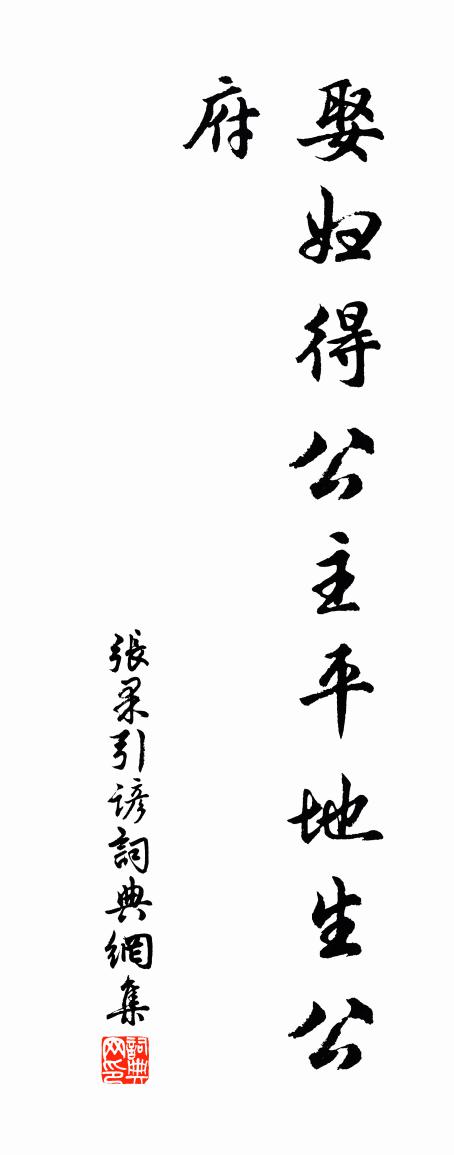 娶妇得公主平地生公
府
張杲引諺詞典網集
詞典
网印